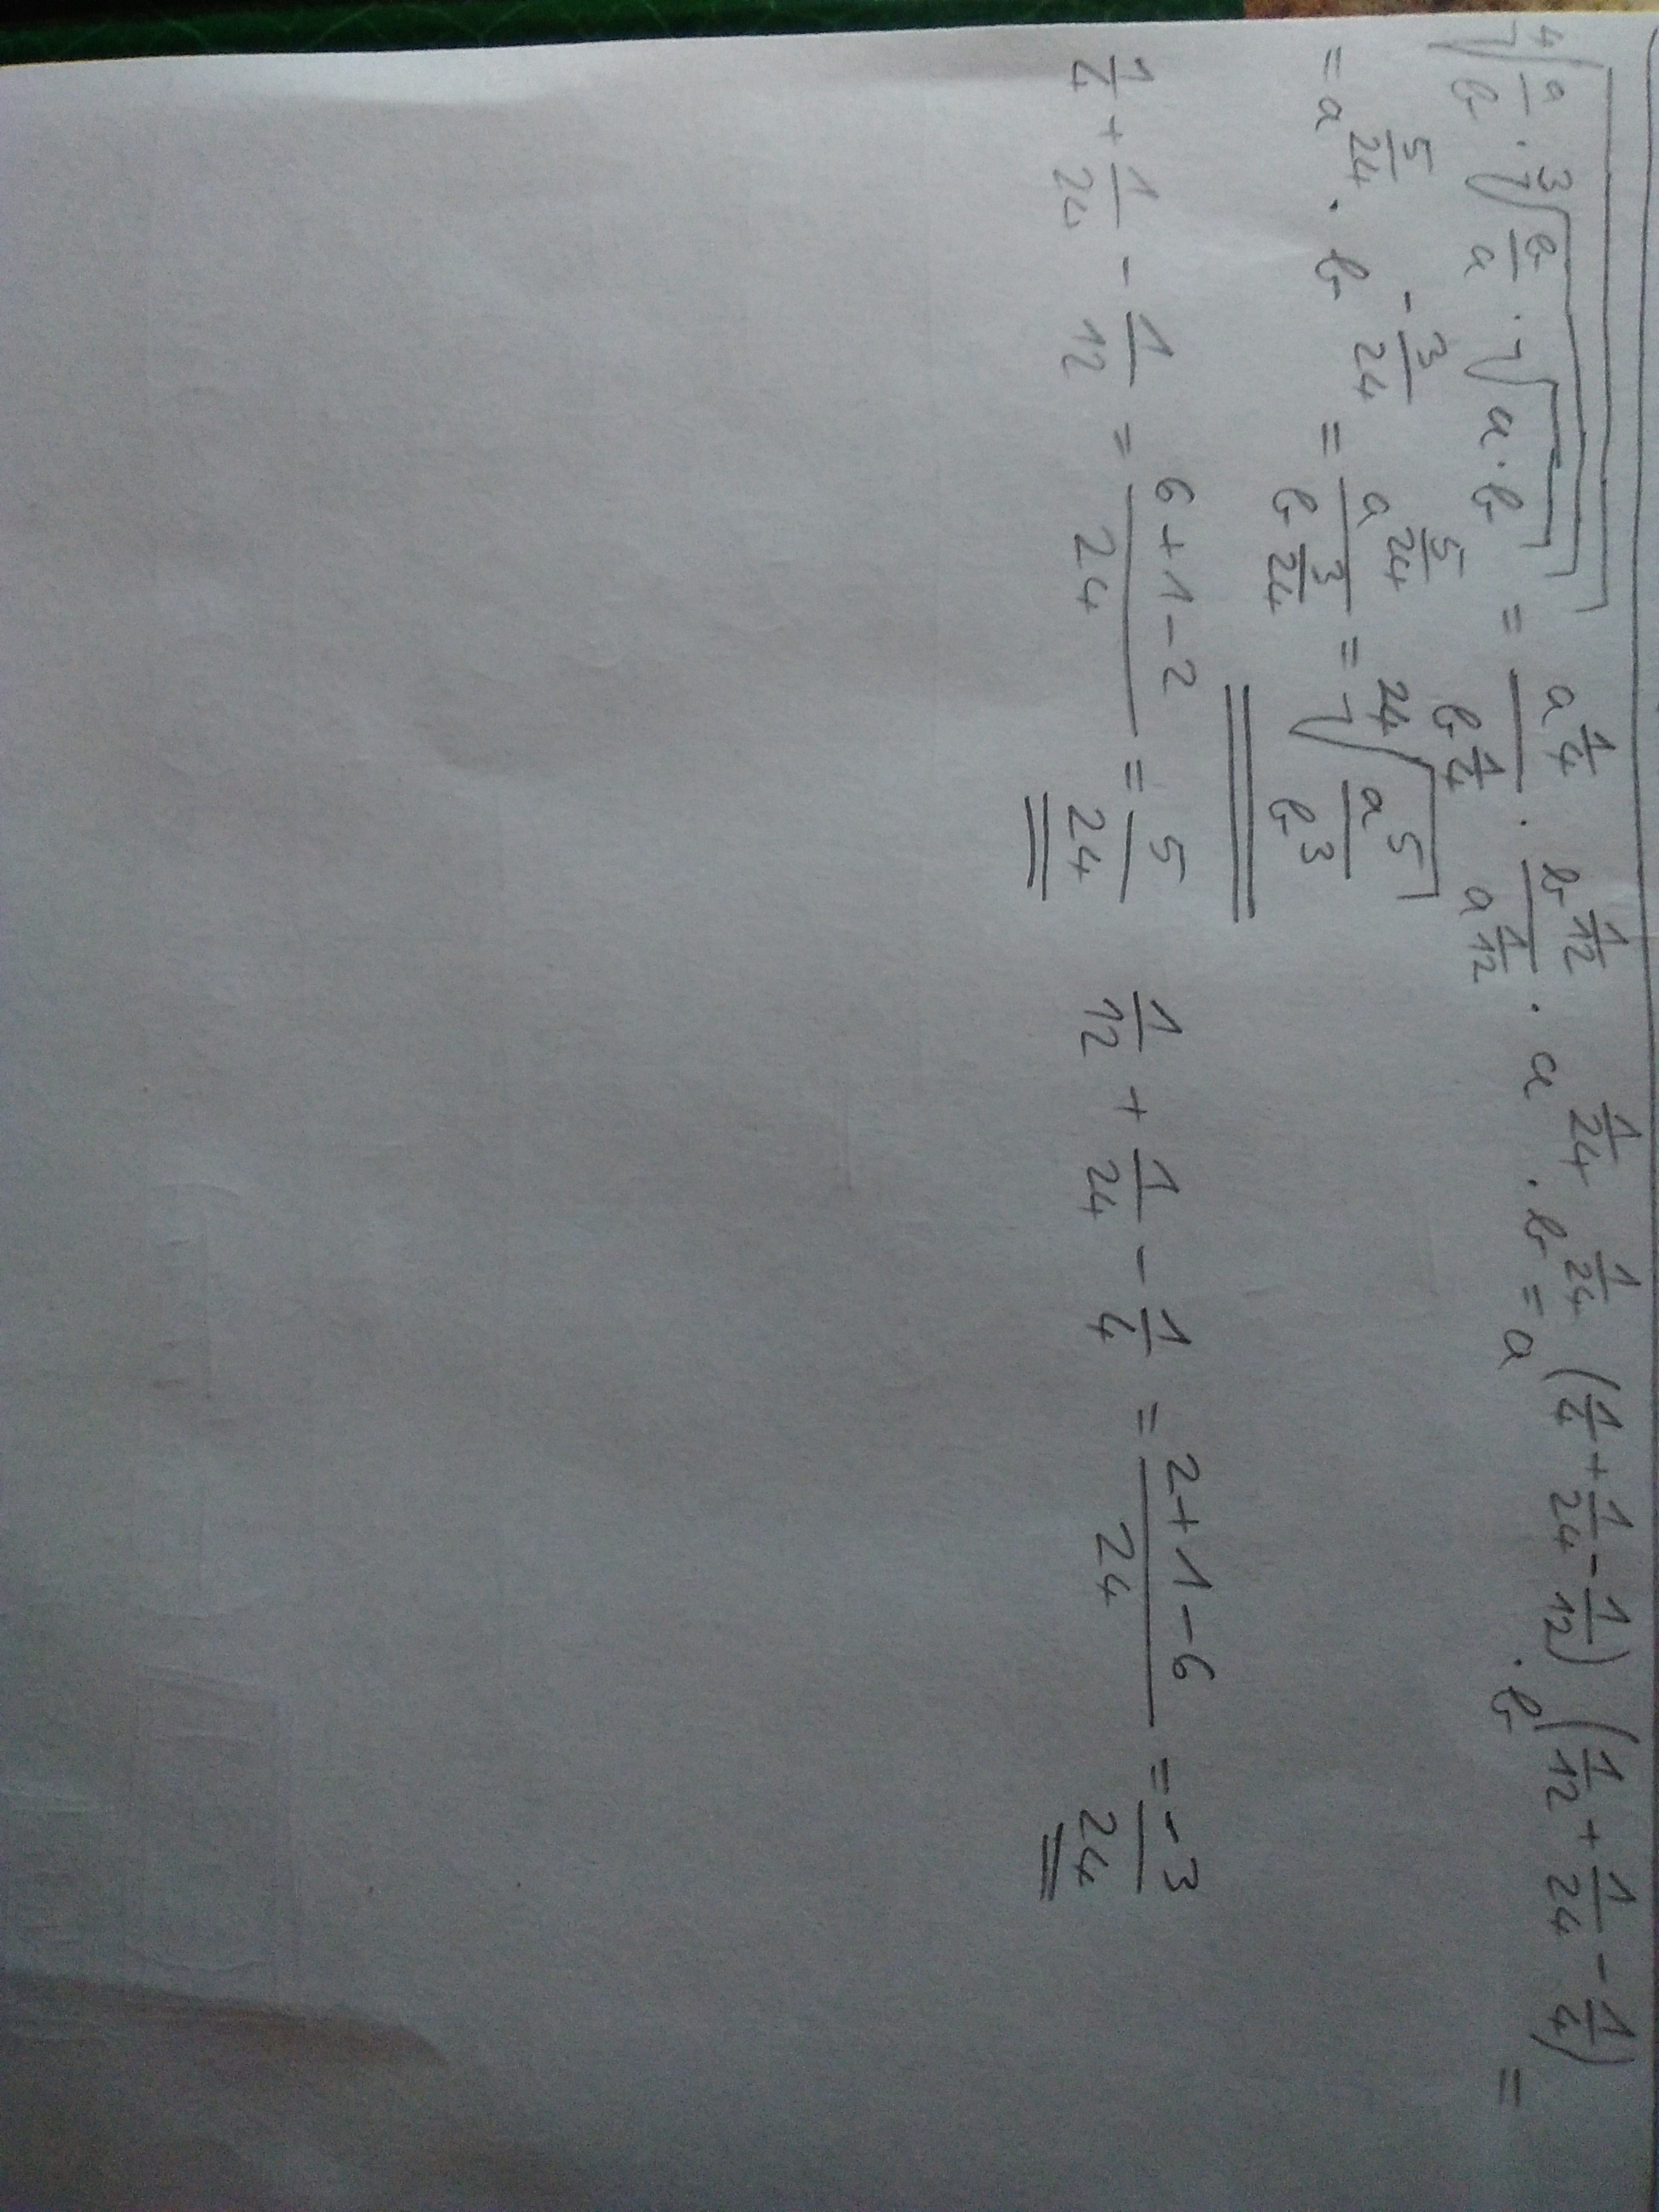 ⁴√(a/b · ³√(b/a · √(a · b))) = a^(1/4)/b^(1/4) · b^(1/12)/a^(1/12) · a^(1/24) · b^(1/24) = a^(1/4 + 1/24 - 1/12) · b^(1/12 + 1/24 - 1/4) =
= a^(5/24) · b^(-3/24) = a^(5/24)/b^(3/24) = ²⁴√(a^5/b^3)
1/4 + 1/24 - 1/12 = (6+1-2)/24 = 5/24 1/12 + 1/24 - 1/4 = (2+1-6)/24 = -3/24